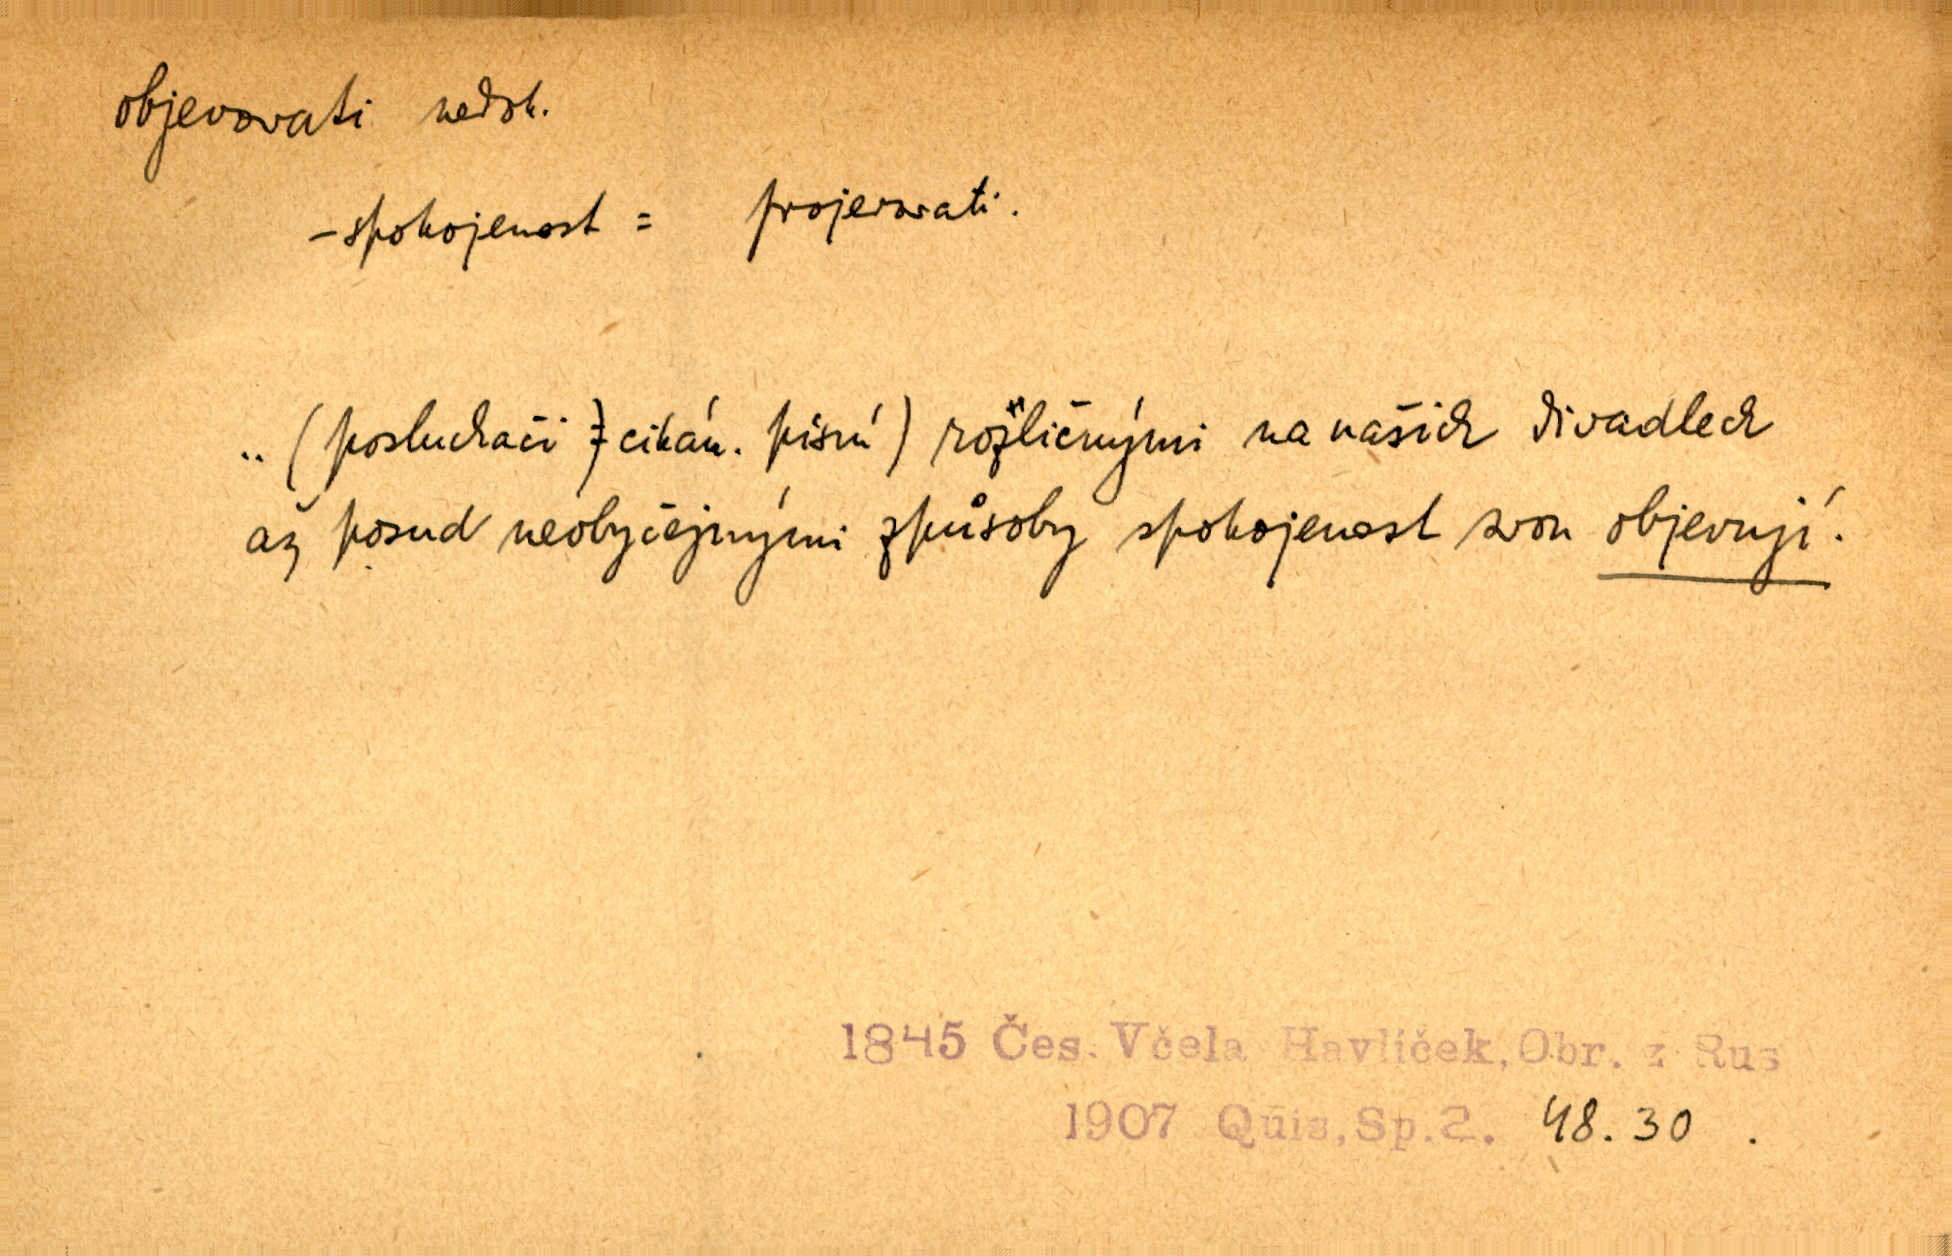 objevovati nedok.
-spokojenost = projevovati.
.. (posluchači cikán. písní) rozličnými na našich divadlech
až posud neobyčejnými způsoby spokojenost svou objevují.
1845 Čes. Včela Havlíček, Obr. z Rus
1907 Quis, Sp. 2. 48. 30 .